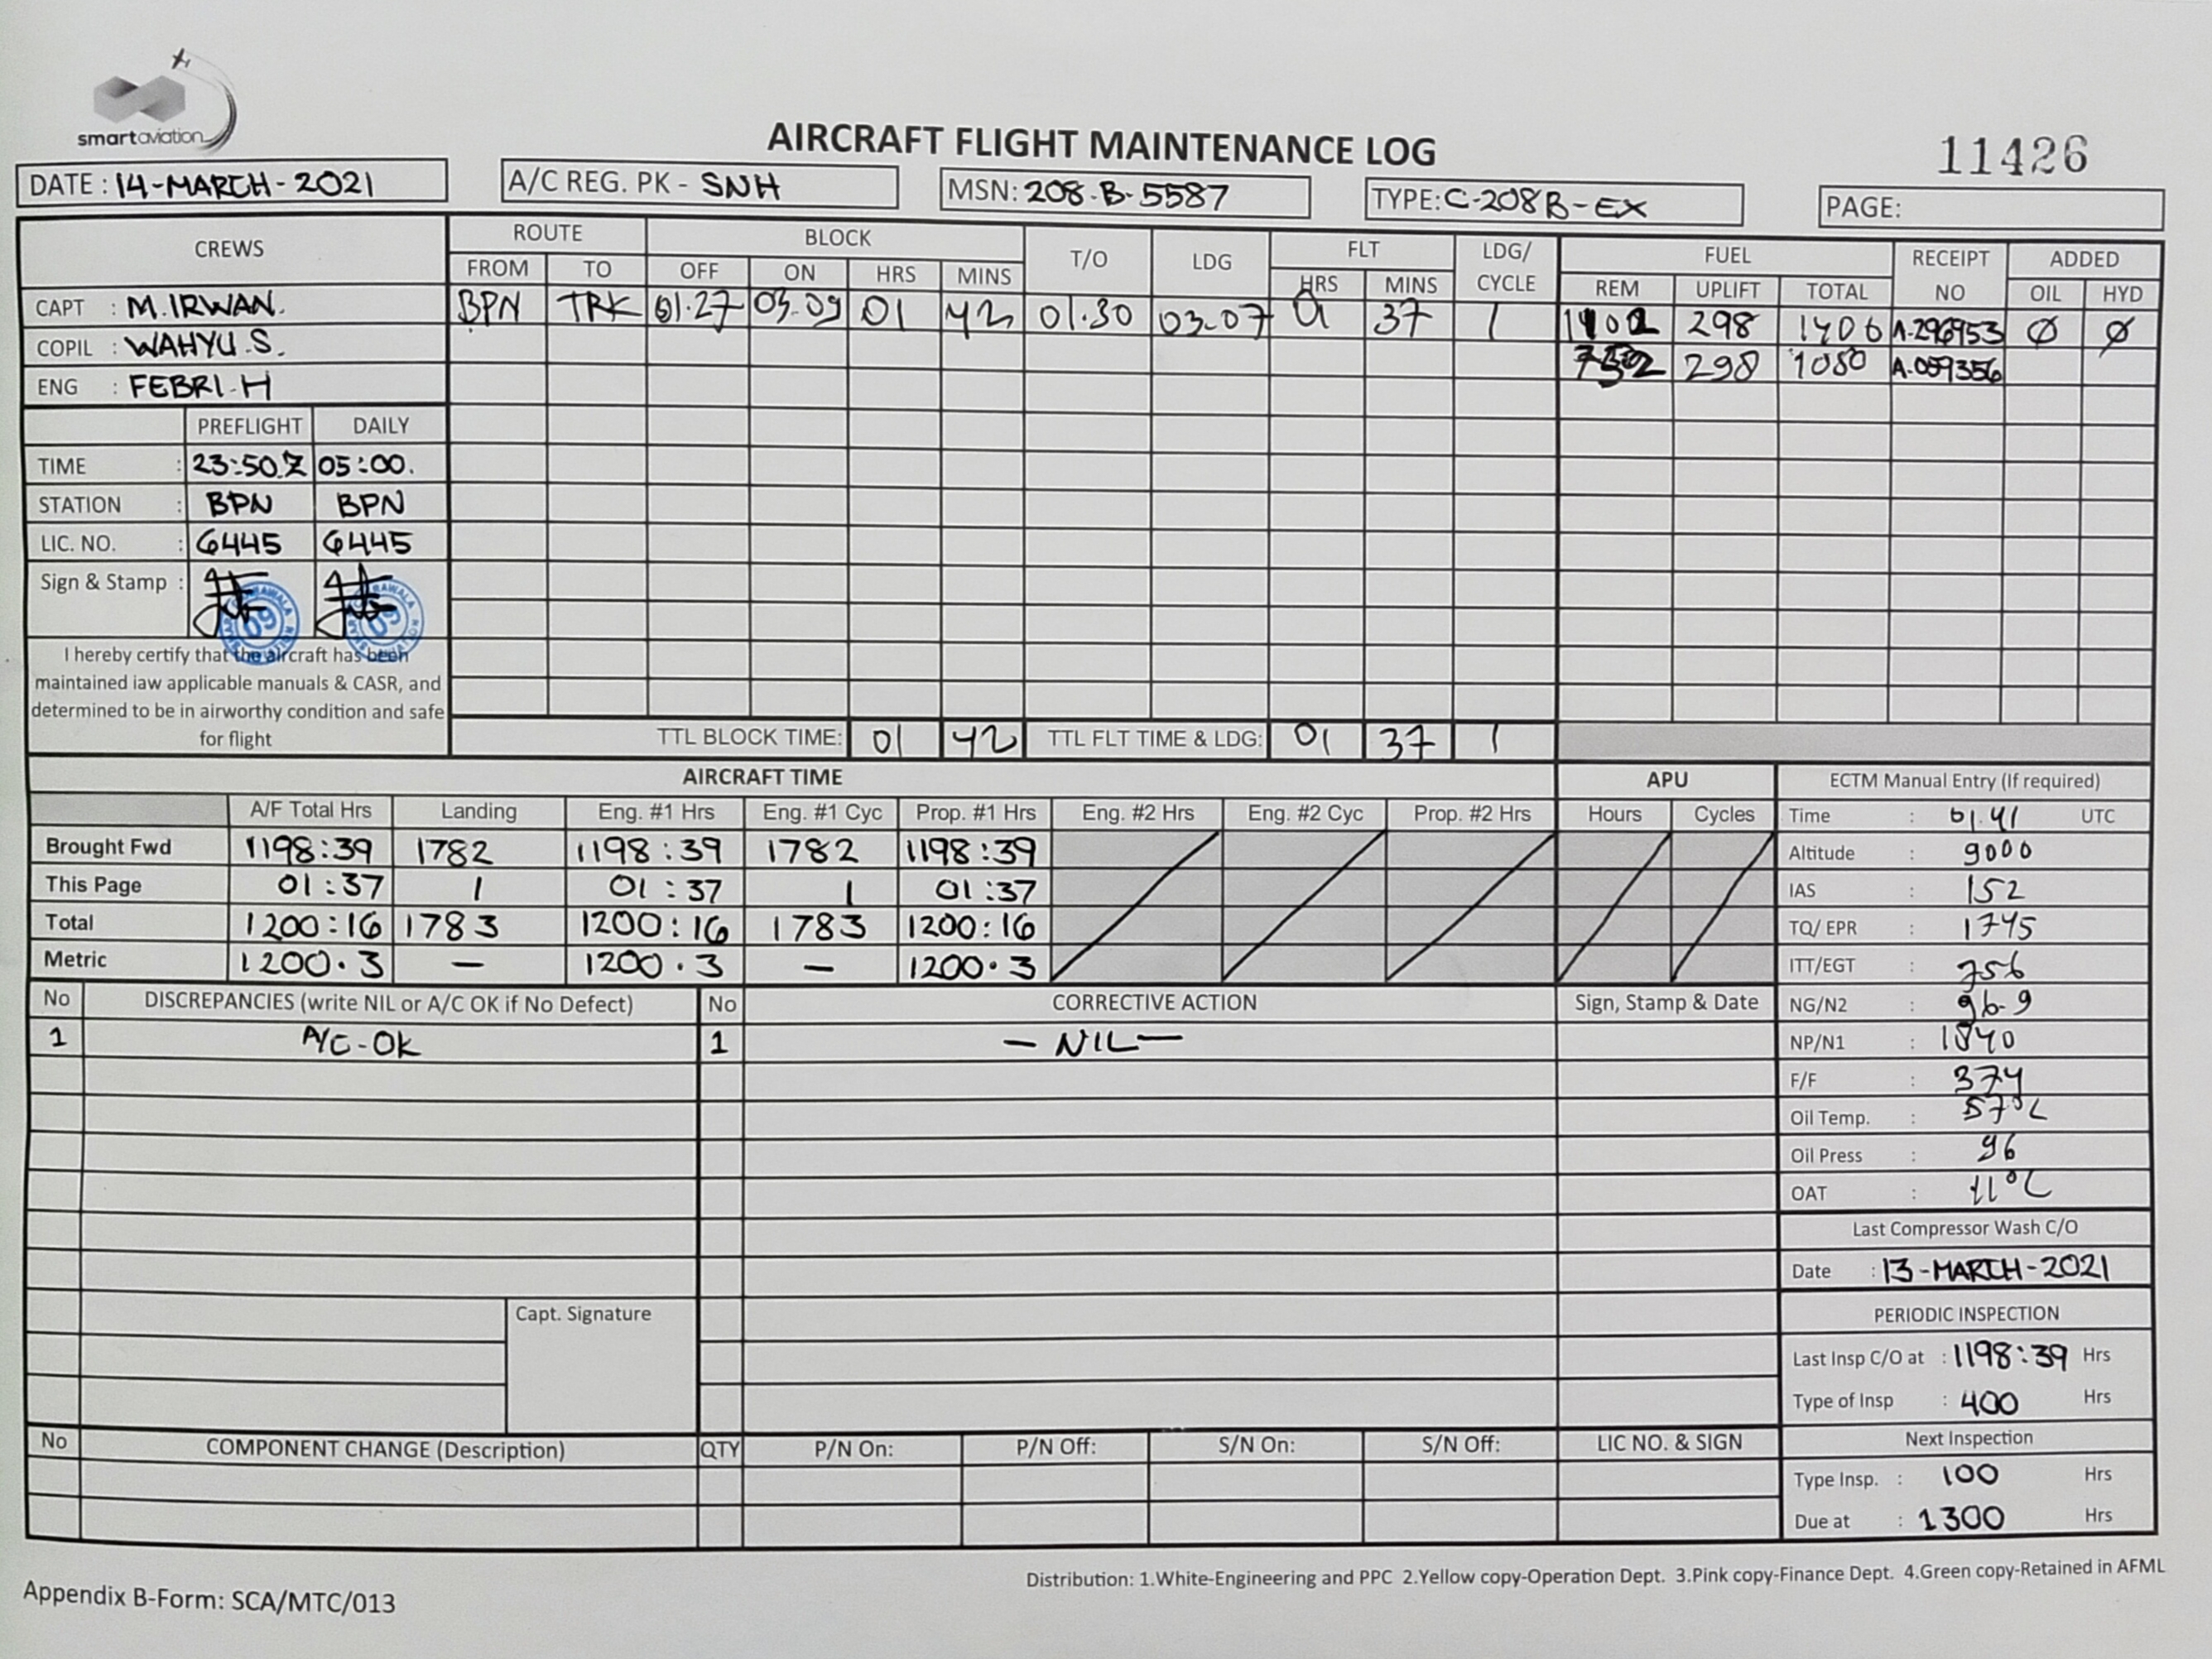 smartaviation
AIRCRAFT FLIGHT MAINTENANCE LOG
11426
DATE : 14-MARCH-2021
A/C REG. PK - SNH
MSN: 208-B-5587
TYPE: C-208B-EX
PAGE:
CREWS
CAPT : M.IRWAN.
COPIL : WAHYU.S.
ENG : FEBRI-H
ROUTE BLOCK T/O LDG FLT LDG/ CYCLE FUEL RECEIPT NO ADDED
FROM TO OFF ON HRS MINS HRS MINS REM UPLIFT TOTAL OIL HYD
BPN TRK 01.27 03.09 01 42 01.30 03.07 01 37 1 298 1406 A-296953 Ø Ø
298 1080 A.059356
PREFLIGHT DAILY
TIME : 23:50.Z 05:00.
STATION : BPN BPN
LIC. NO. : 6445 6445
Sign & Stamp :
09 09
I hereby certify that the aircraft has been
maintained iaw applicable manuals & CASR, and
determined to be in airworthy condition and safe
for flight
TTL BLOCK TIME: 01 42 TTL FLT TIME & LDG: 01 37 1
AIRCRAFT TIME APU
A/F Total Hrs Landing Eng. #1 Hrs Eng. #1 Cyc Prop. #1 Hrs Eng. #2 Hrs Eng. #2 Cyc Prop. #2 Hrs Hours Cycles
Brought Fwd 1198:39 1782 1198:39 1782 1198:39
This Page 01:37 1 01:37 1 01:37
Total 1200:16 1783 1200:16 1783 1200:16
Metric 1200.3 — 1200.3 — 1200.3
ECTM Manual Entry (If required)
Time : 01.41 UTC
Altitude : 9000
IAS : 152
TQ/ EPR : 1745
ITT/EGT : 756
NG/N2 : 96.9
NP/N1 : 1840
F/F : 374
Oil Temp. : 57°C
Oil Press : 96
OAT : 11°C
Last Compressor Wash C/O
Date : 13-MARCH-2021
PERIODIC INSPECTION
Last Insp C/O at : 1198:39 Hrs
Type of Insp : 400 Hrs
Next Inspection
Type Insp. : 100 Hrs
Due at : 1300 Hrs
No DISCREPANCIES (write NIL or A/C OK if No Defect) No CORRECTIVE ACTION Sign, Stamp & Date
1 A/C-OK 1 — NIL —
Capt. Signature
No COMPONENT CHANGE (Description) QTY P/N On: P/N Off: S/N On: S/N Off: LIC NO. & SIGN
Distribution: 1.White-Engineering and PPC 2.Yellow copy-Operation Dept. 3.Pink copy-Finance Dept. 4.Green copy-Retained in AFML
Appendix B-Form: SCA/MTC/013